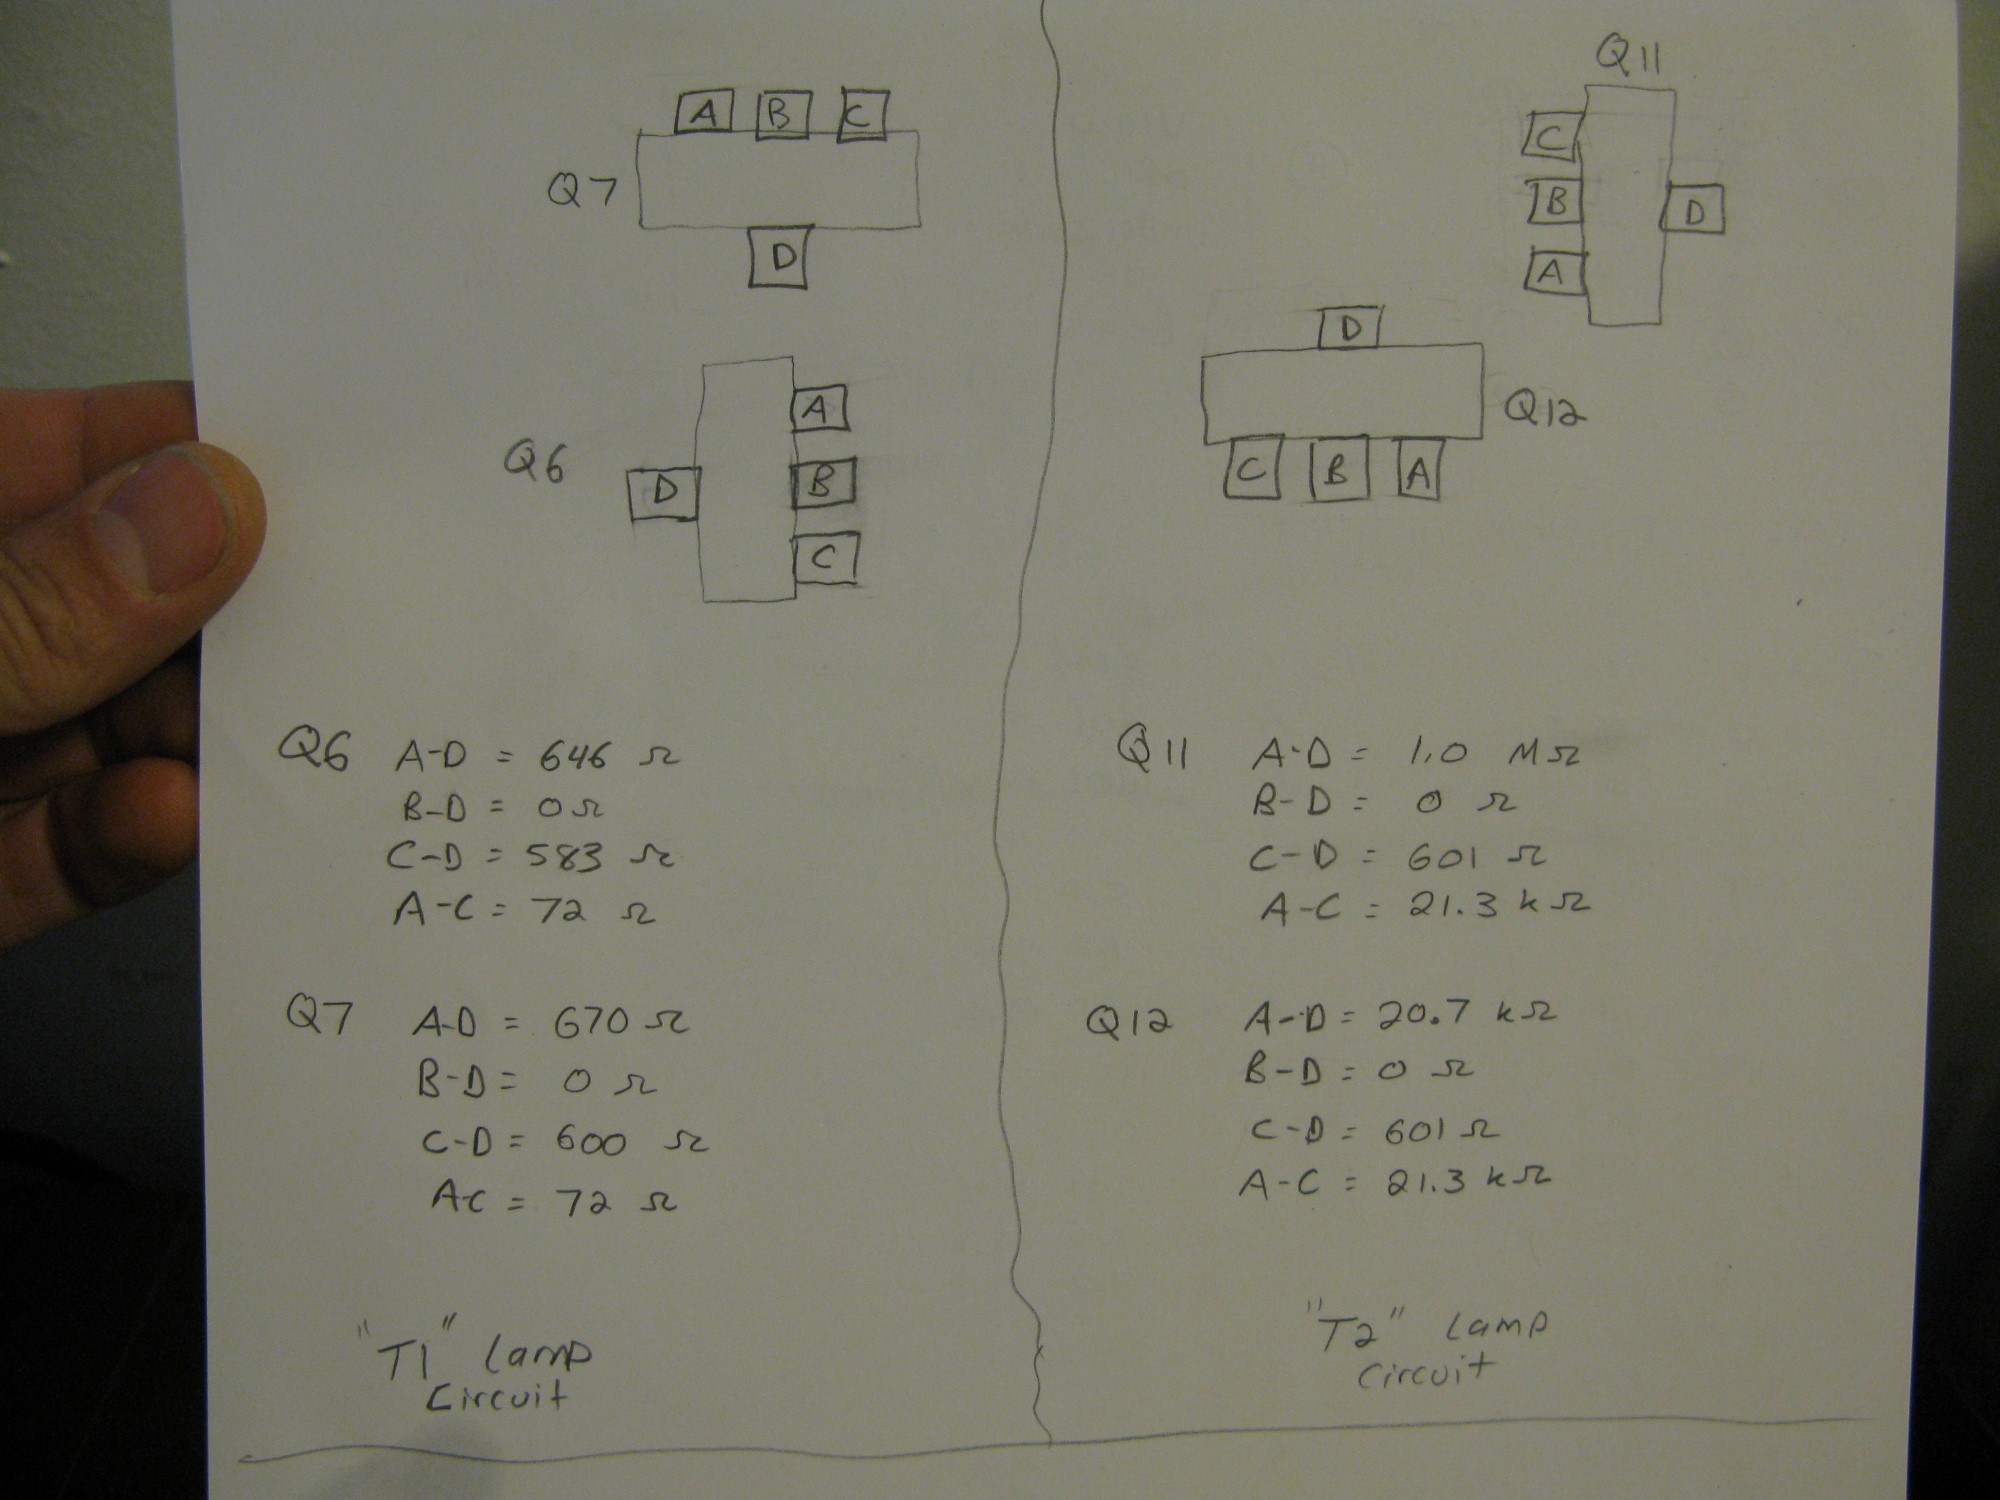 A B C
Q7
D
A
Q6
D B
C
Q6 A-D = 646 Ω
B-D = 0 Ω
C-D = 583 Ω
A-C = 72 Ω
Q7 A-D = 670 Ω
B-D = 0 Ω
C-D = 600 Ω
A-C = 72 Ω
"T1" Lamp
Circuit
Q11
C
B D
A
D
Q12
C B A
Q11 A-D = 1.0 MΩ
B-D = 0 Ω
C-D = 601 Ω
A-C = 21.3 kΩ
Q12 A-D = 20.7 kΩ
B-D = 0 Ω
C-D = 601 Ω
A-C = 21.3 kΩ
"T2" Lamp
Circuit